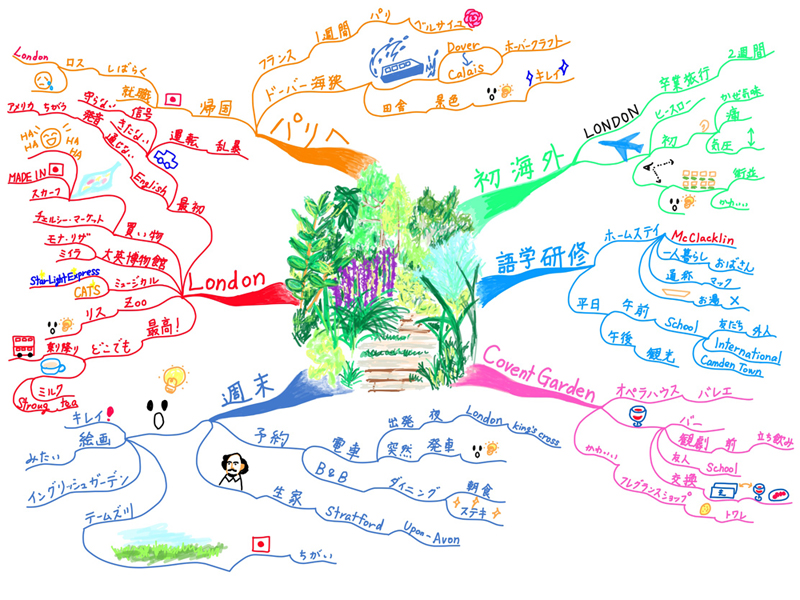 初海外
LONDON
卒業旅行
2週間
ヒースロー
初
かぜ気味
痛
気圧
街並
かわいい
語学研修
ホームステイ
McClacklin
一人暮らし
おばさん
通称
マック
お湯
×
平日
午前
School
友だち
外人
International
Camden Town
午後
観光
Covent Garden
オペラハウス
バレエ
バー
観劇
前
立ち飲み
友人
School
交換
かわいい
フレグランスショップ
トワレ
週末
予約
電車
出発
後
London
king's cross
突然
発車
B&B
ダイニング
朝食
ステキ
生家
Stratford
Upon-Avon
絵画
キレイ
みたい
イングリッシュガーデン
テームズ川
ちがい
London
最初
English
通じない
発音
ちがう
アメリカ
HA
HA
HA
HA
運転
乱暴
信号
守らない
きたない
買い物
MADE IN
スカーフ
チェルシー・マーケット
大英博物館
モナ・リザ
ミイラ
ミュージカル
StarLightExpress
CATS
Zoo
リス
最高!
どこでも
乗り降り
ミルク
Strong
tea
パリへ
フランス
1週間
パリ
ベルサイユ
ドーバー海狭
Dover
Calais
ホーバークラフト
田舎
景色
キレイ
帰国
就職
しばらく
ロス
London